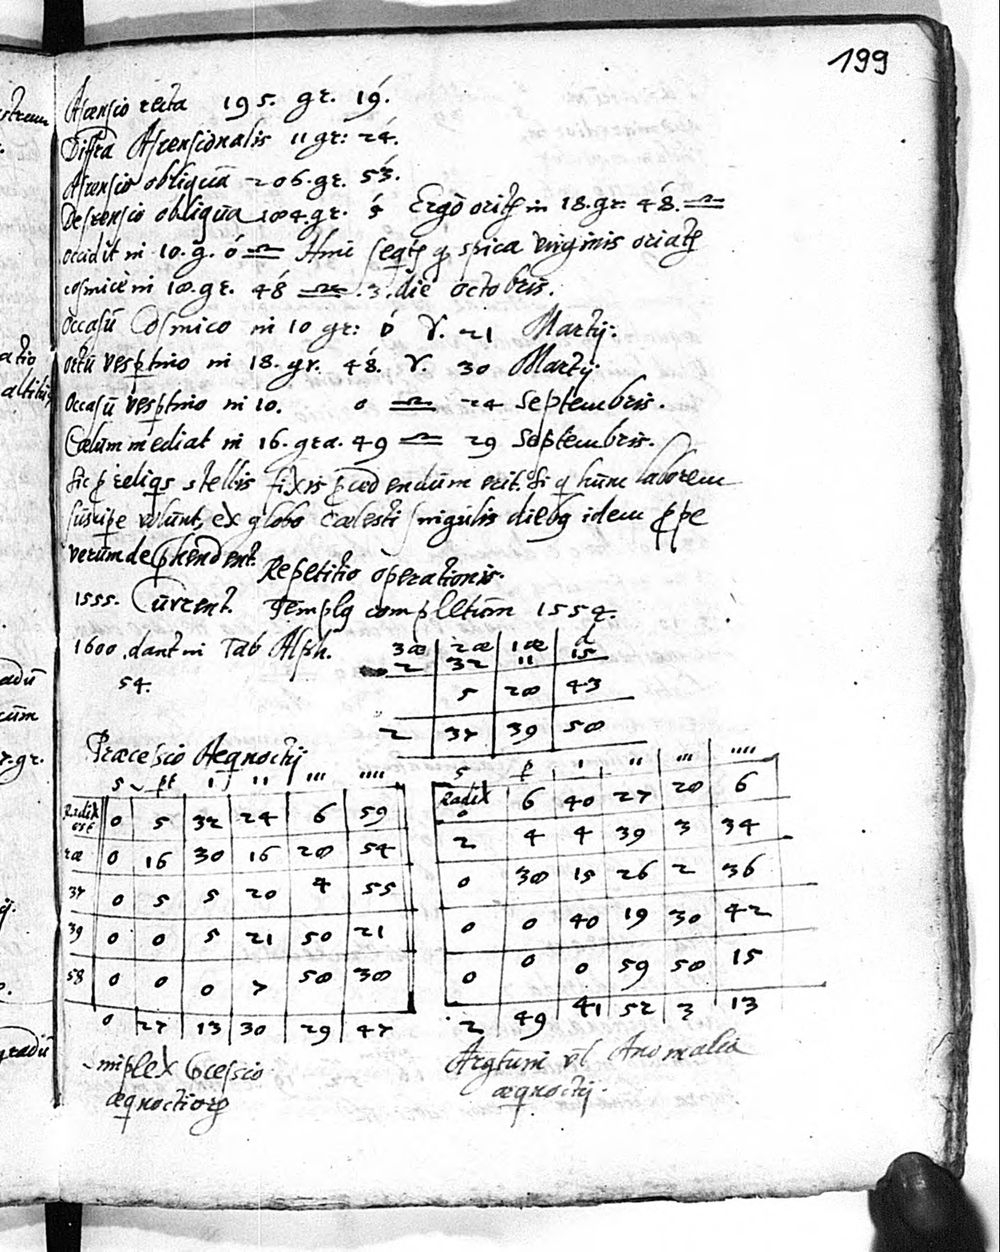 199
Ascensio recta 195. gr. 19.
Diffra Ascensionalis 11 gr: 24.
Ascensio obliqua 206. gr. 53.
Descensio obliqua 184. gr. Ergo orit in 18. gr. 48. ♎
occidit in 10. g. 0 ♎ Hinc seqt q spica virginis oriat
cosmice in 18. gr. 48 ♎ .3. die octobris.
occasu Cosmico in 10 gr: 0 ♈. 21 Martij.
ortu vesptino in 18. gr. 48. ♈. 30 Martij.
occasu vesptino in 10. 0 ♎ 24 Septembris.
Cœlum mediat in 16. gra. 49 ♎ 29 Septembris.
Sic p reliqs stellis fixis pcedendum erit. Si q hunc laborem
suscipe volunt, ex globo cœlesti singulis dieb9 idem ppe
verum dephendent.
Repetitio operationis.
1555. Current. Temp9 completum 1554.
1600 . dant in Tab Alph. 3æ 2æ 1æ
2 32 11 15
54. 5 28 43
2 37 39 58
Præcessio Aeqnoctij
s pt ' '' ''' ''''
Radix 0 5 32 24 6 59
2æ 0 16 30 16 28 54
37 0 5 5 20 4 55
39 0 0 5 21 50 21
58 0 0 0 7 58 38
0 27 13 30 29 47
Simplex pcessio
æqnoctiorum
s p ' '' ''' ''''
Radix
0 6 40 27 28 6
2 4 4 39 3 34
0 38 15 26 2 36
0 0 40 19 30 42
0 0 0 59 58 15
2 49 41 52 3 13
Argtum vl Anomalia
æqnoctij.